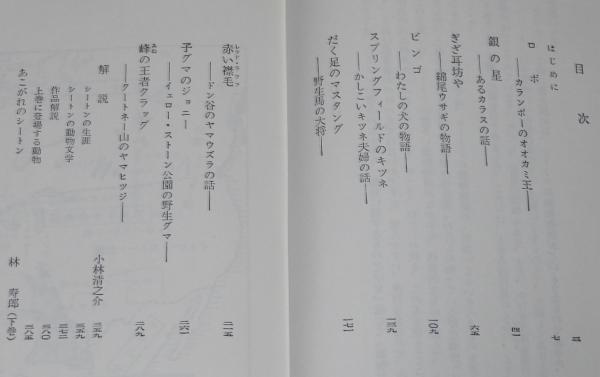 目次
はじめに 三
ロボ 七
――カランポーのオオカミ王――
銀の星 四一
――あるカラスの話――
ぎざ耳坊や 六五
――綿尾ウサギの物語――
ビンゴ 一〇九
――わたしの犬の物語――
スプリングフィールドのキツネ 一三九
――かしこいキツネ夫婦の話――
だく足のマスタング 一七一
――野生馬の大将――
レッドラッフ
赤い襟毛 二一五
――ドン谷のヤマウズラの話――
子グマのジョニー 二六一
――イェロー・ストーン公園の野生グマ――
みね
峰の王者クラッグ 二八九
――クートネー山のヤマヒツジ――
解説 小林清之介 三五九
シートンの生涯 三五九
シートンの動物文学 三七二
作品解説 三八〇
上巻に登場する動物 三八五
あこがれのシートン 林寿郎(下巻)